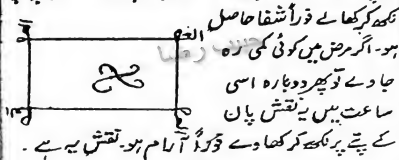 نکھ کر کھالے فوراً شفا حاصل
ہو۔ اگر مرض میں کوئی کمی رہ
جاوے تو پھر دوبارہ اسی
ساعت میں یہ نقش پان
کے پتے پر نکھ کر کھاوے فوراً آرام ہو۔ نقش یہ ہے۔